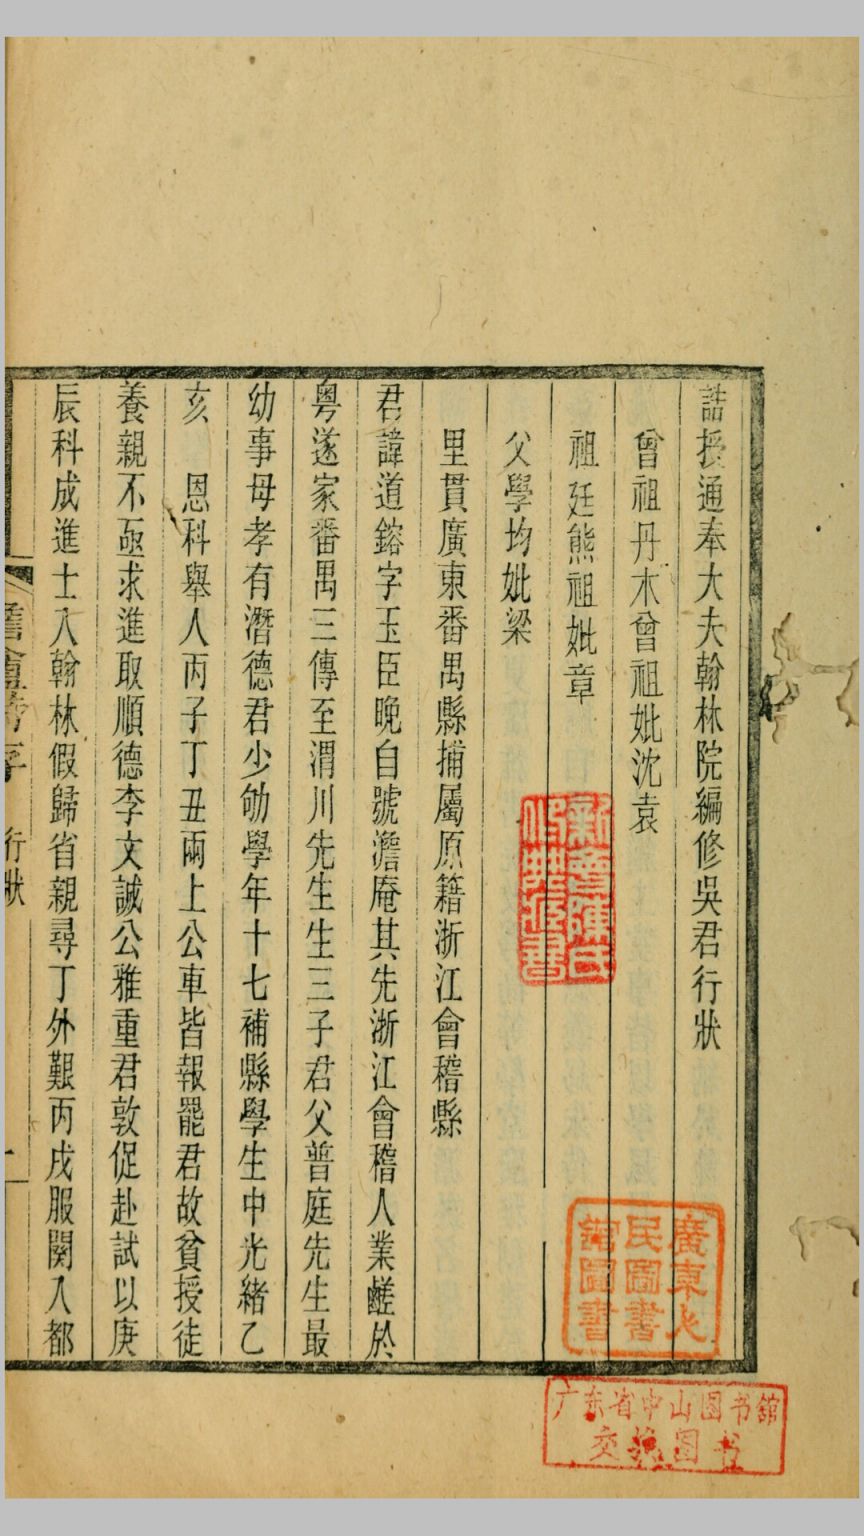 誥授通奉大夫翰林院編修吳君行狀
曾祖丹木曾祖妣沈袁
祖廷熊祖妣章
父學均妣梁
里貫廣東番禺縣捕屬原籍浙江會稽縣
君諱道鎔字玉臣晚自號澹庵其先浙江會稽人業鹺於
粤遂家番禺三傳至渭川先生生三子君父普庭先生最
幼事母孝有潛德君少劬學年十七補縣學生中光緒乙
亥 恩科舉人丙子丁丑兩上公車皆報罷君故貧授徒
養親不亟求進取順德李文誠公雅重君敦促赴試以庚
辰科成進士入翰林假歸省親尋丁外艱丙戌服闋入都
行狀
一
新會陳氏
廣東人
民圖書
館圖書
广东省中山图书舘
交换图书